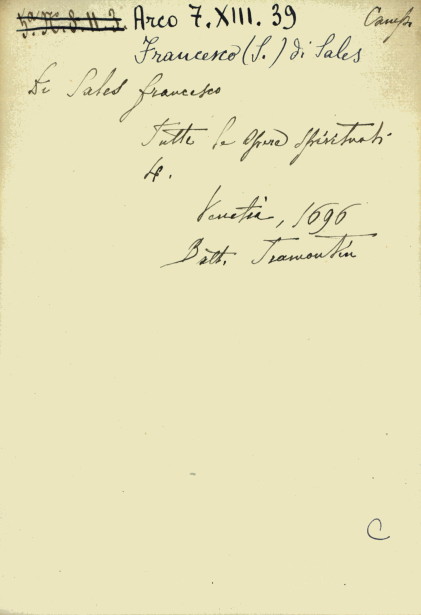 Arco 7.XIII.39
Francesco (S.) di Sales
Di Sales francesco
Tutte le opere spirituali
4.
Venetia, 1696
Batt. Tramontin
C